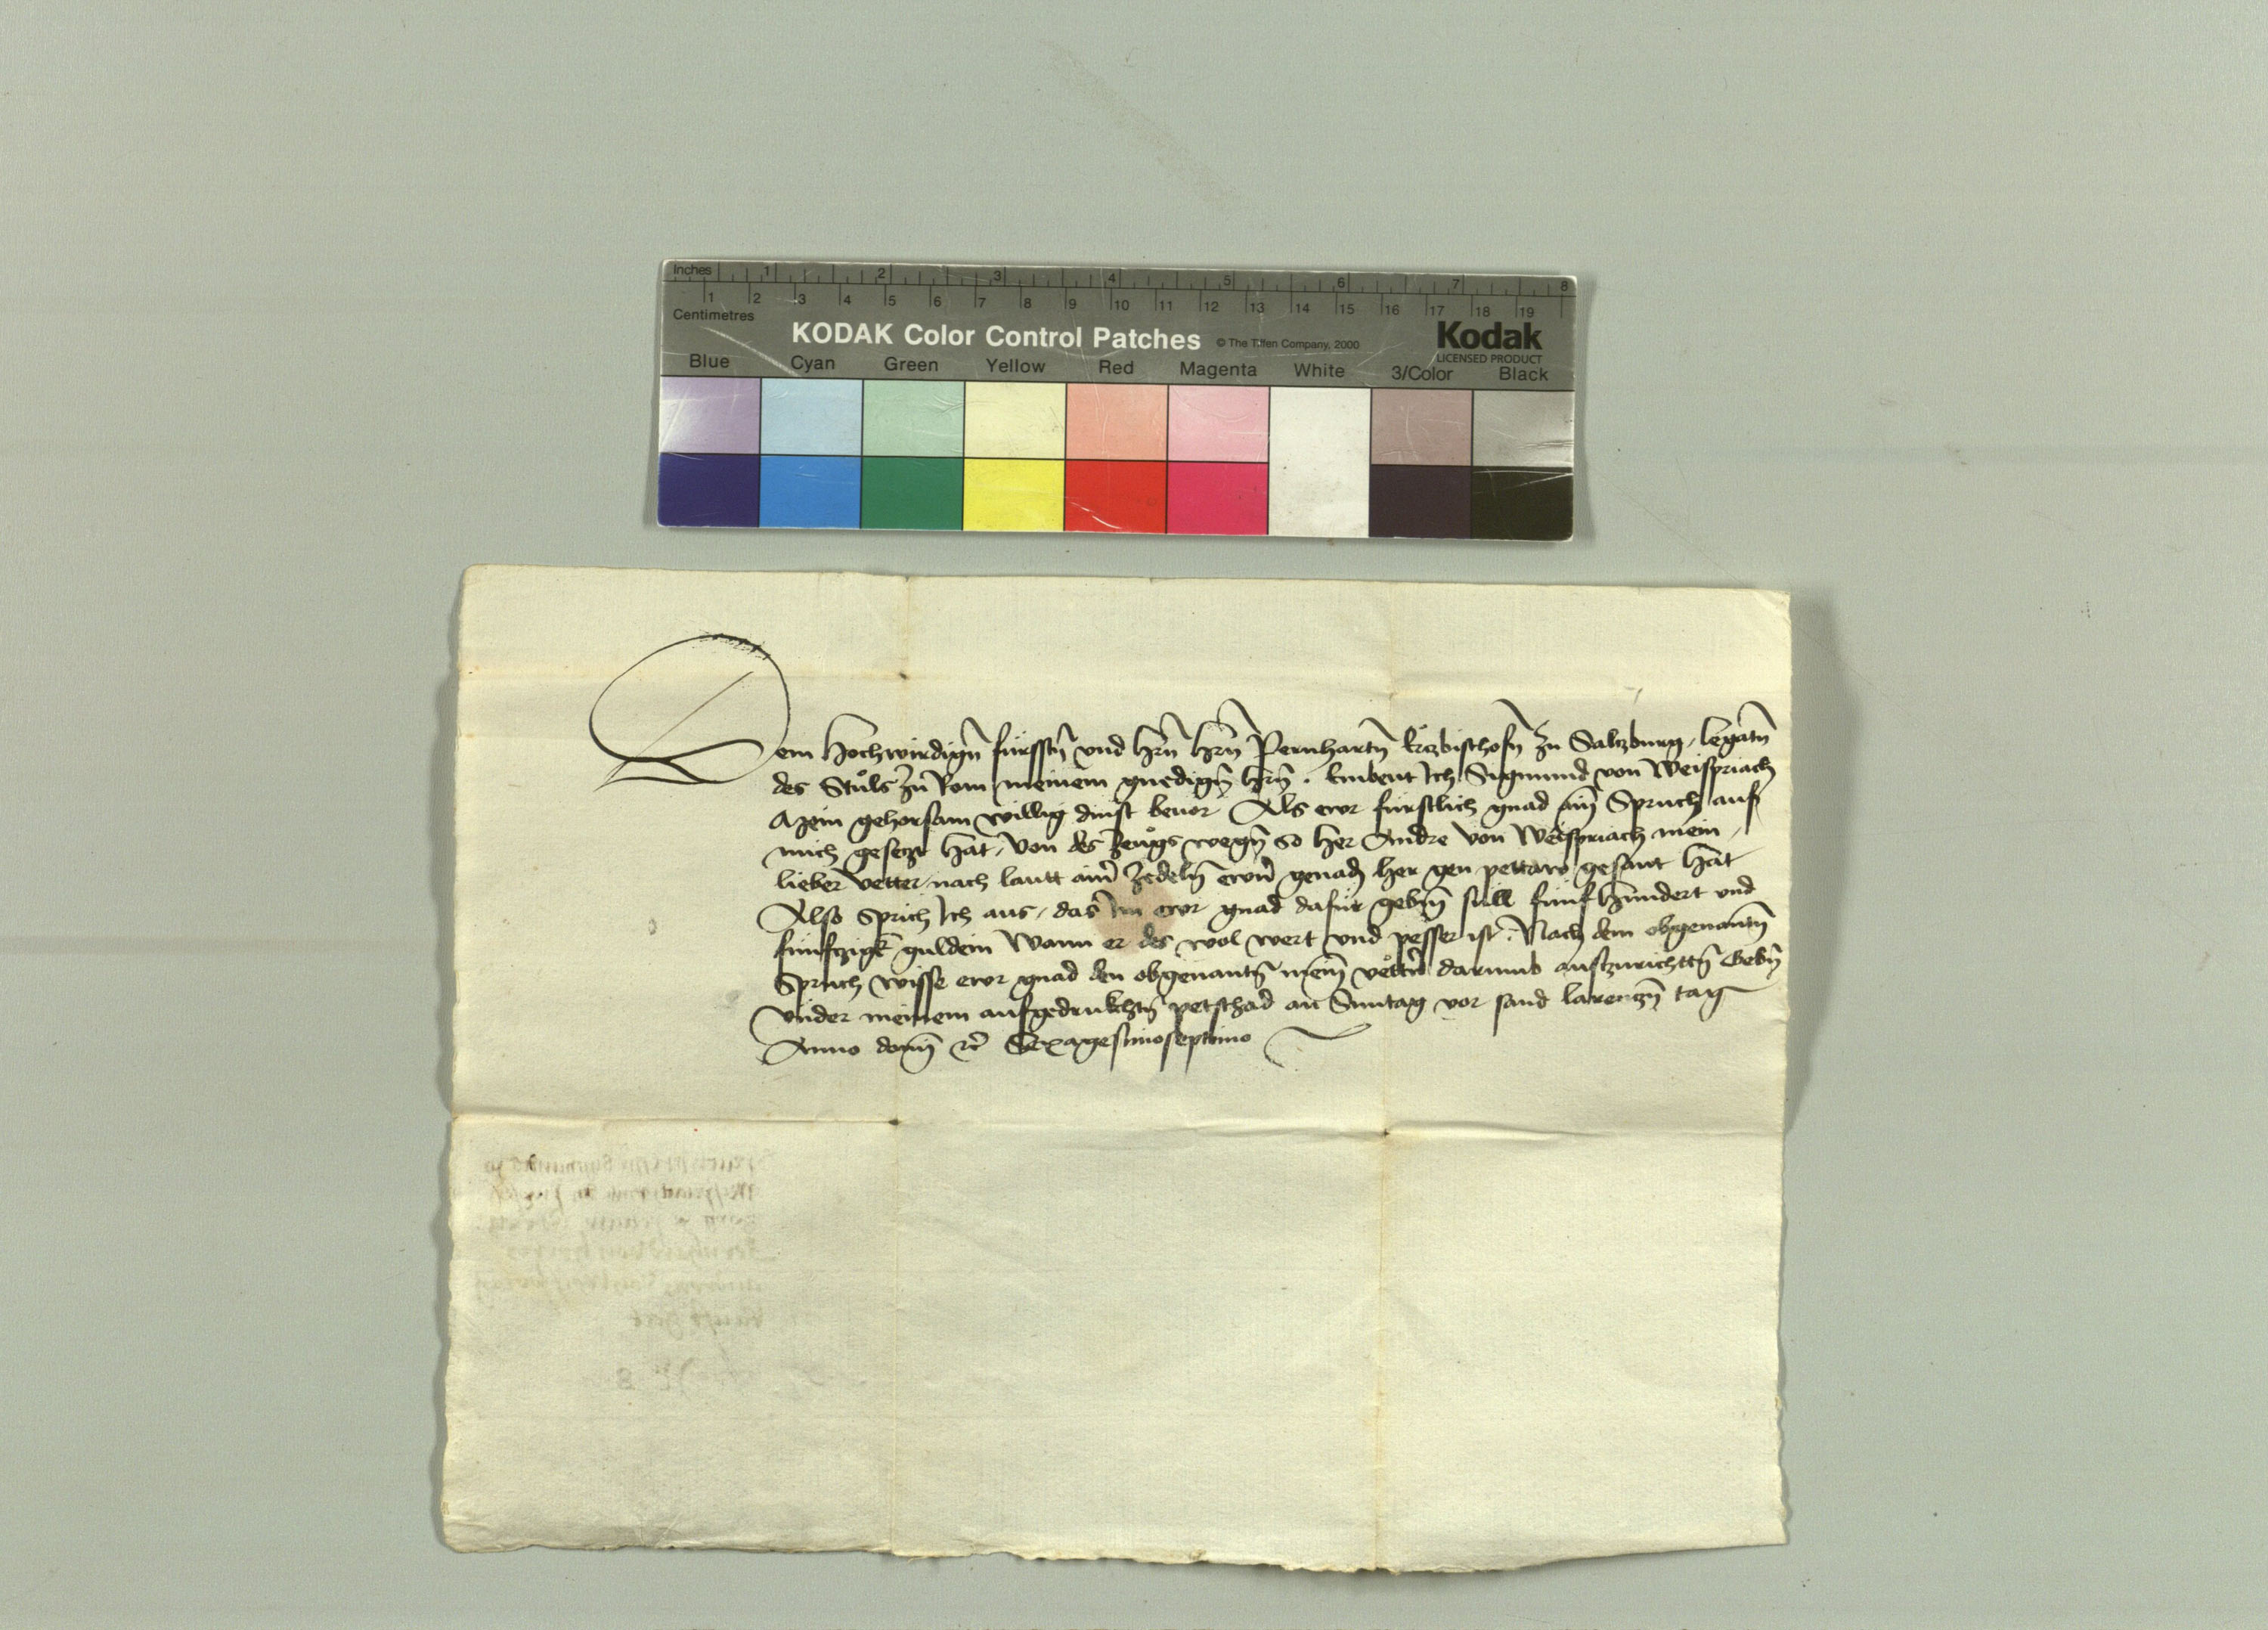 Inches 1 2 3 4 5 6 7 8
1 2 3 4 5 6 7 8 9 10 11 12 13 14 15 16 17 18 19
Centimetres
KODAK Color Control Patches © The Tiffen Company, 2000 Kodak
LICENSED PRODUCT
Blue Cyan Green Yellow Red Magenta White 3/Color Black
Dem Hochwirdigñ fürsstñ vnd hrñ hrñ Pernhartñ Ertzbischofñ zu Saltzburg, legatñ
des Stuls zu Rom meinem gnedigñ hrñ. Embeut Ich Sigmund von Weispriach
Mein gehorsam willig dinst beuor Als ewr fürstlich gnad ain̄ Spruch auf
mich gesetzt hat, von des zeugs wegñ so her Andre von Weispriach mein
lieber vetter, nach lautt ain̄ zedeln̄ ewrñ genadn̄ her gen pettaw gesant hat
Also Sprich Ich aus, das Im ewr gnad dafür gebñ süll fünfhundert vnd
fünfczigk guldein Wann er des wol wert vnd pesser ist. Nach dem obgenantñ
Spruch wisse ewr gnad den obgenantñ mein̄ vettrñ darumb ausczurichttñ Gebñ
vnder meinem aufgedrukchtñ petschad an Suntag vor sand larenczñ tag
Anno domī etc Sexagesimoseptimo